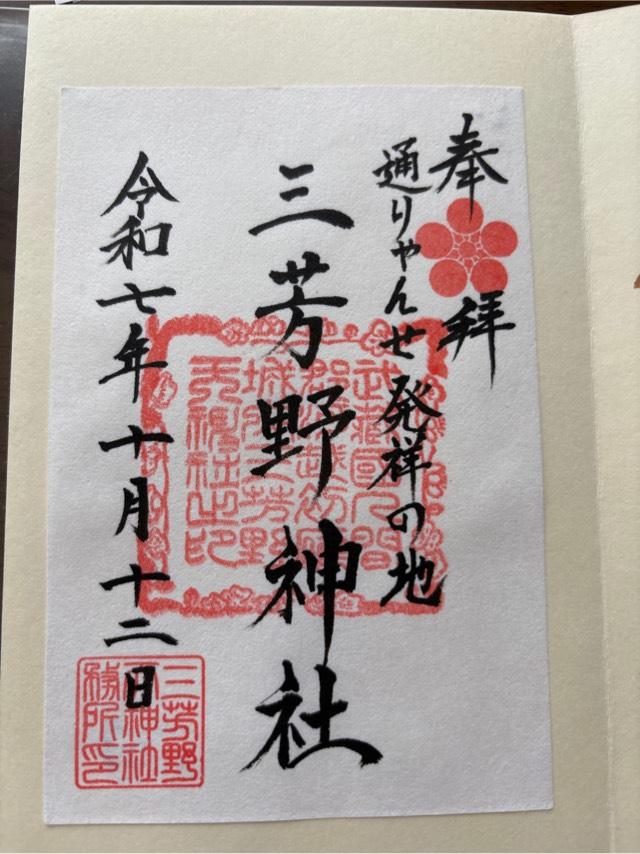 奉拝
通りゃんせ発祥の地
三芳野神社
令和七年十月十二日
武蔵國入間
郡河越初雁
城内三芳野
天神社之印
三芳野
神社
務所印